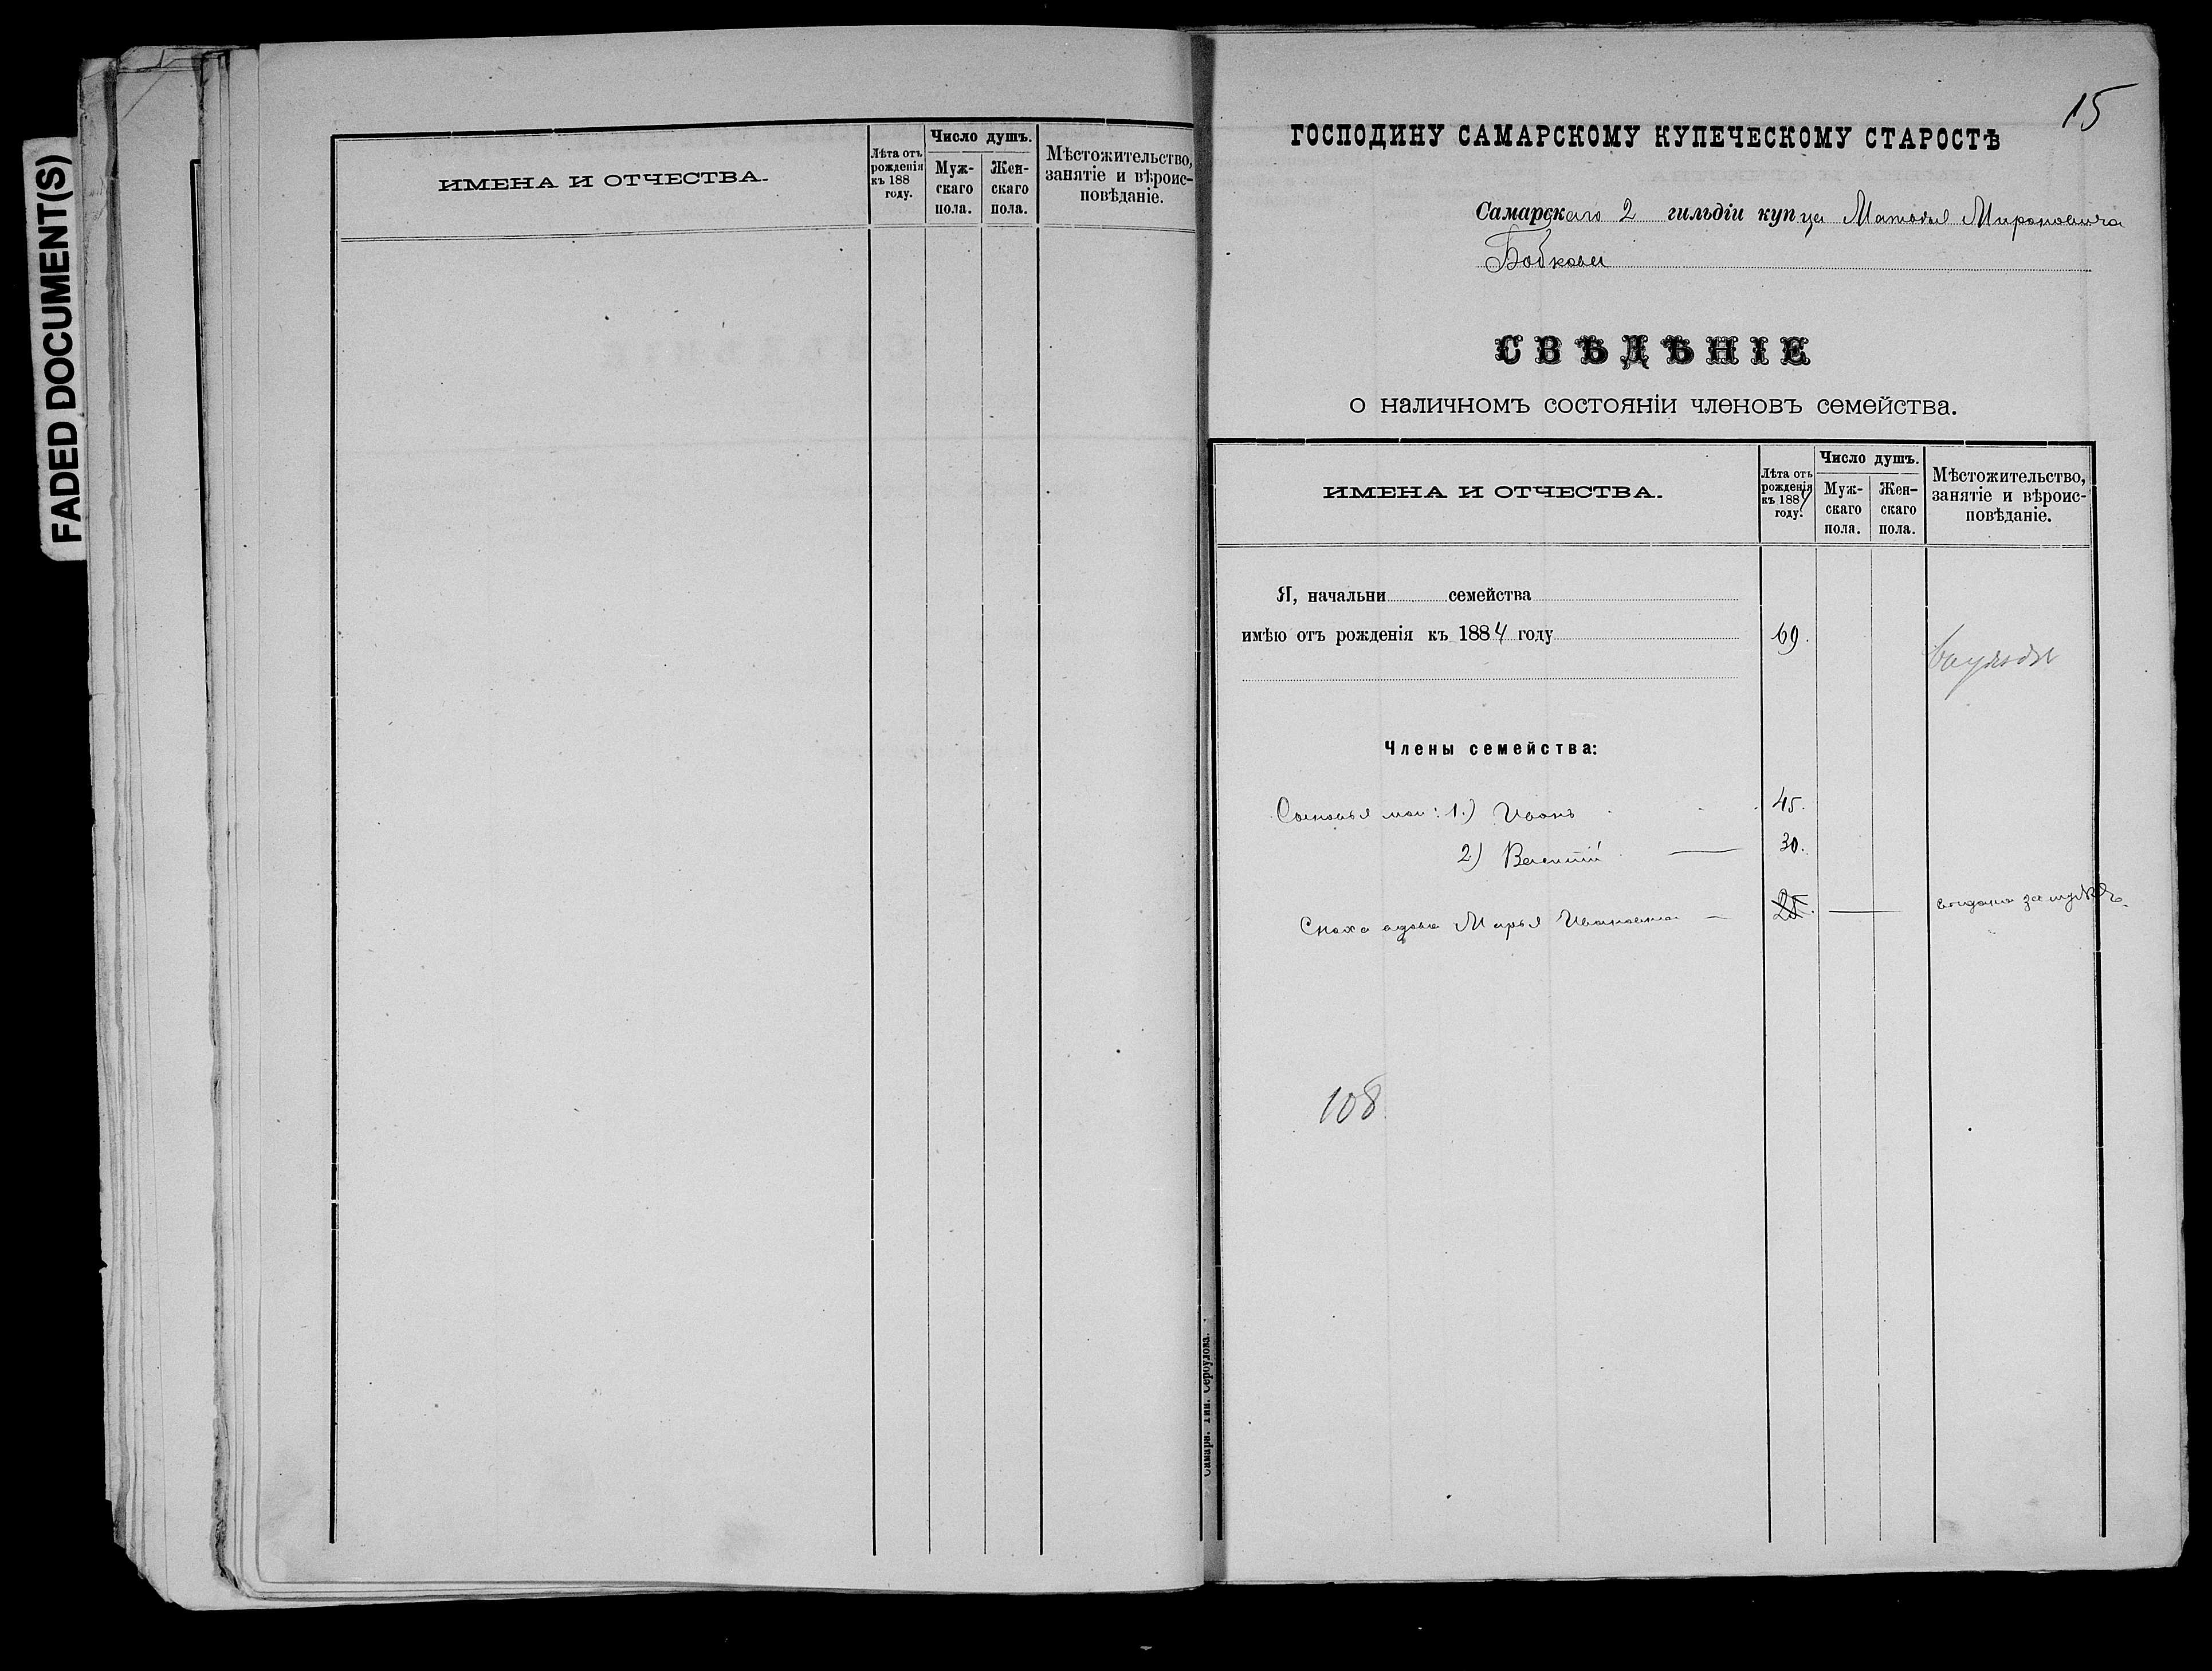 FADED DOCUMENT(S)
ИМЕНА И ОТЧЕСТВА.
Лѣта отъ
рожденія
къ 188
году.
Число душъ.
Муж-
скаго
пола.
Жен-
скаго
пола.
Мѣстожительство,
занятіе и вѣроис-
повѣданіе.
15
ГОСПОДИНУ САМАРСКОМУ КУПЕЧЕСКОМУ СТАРОСТѢ
Самарскаго 2 гильдіи купца Матвѣя Мироновича
Бобкова
СВѢДѢНІЕ
о наличномъ состояніи членовъ семейства.
ИМЕНА И ОТЧЕСТВА.
Лѣта отъ
рожденія
къ 1884
году.
Число душъ.
Муж-
скаго
пола.
Жен-
скаго
пола.
Мѣстожительство,
занятіе и вѣроис-
повѣданіе.
Я, начальни семейства
имѣю отъ рожденія къ 1884 году 69.
Члены семейства:
Сыновья мои: 1.) Иванъ 45.
2) Василій 30.
Сноха вдова Марья Ивановна 25. выдана замужъ
108
Самара. Тип. Сероулова.